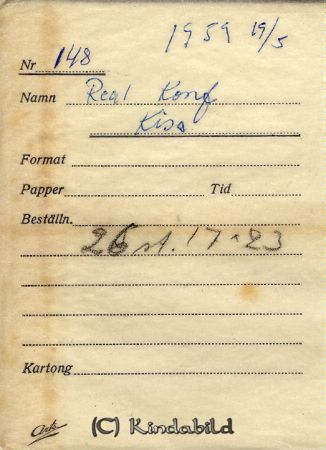 1959 19/5
Nr 148
Namn Real Konf
Kisa
Format
Papper Tid
Beställn.
26 st. 17 × 23
Kartong
Arks
(C) Kindabild